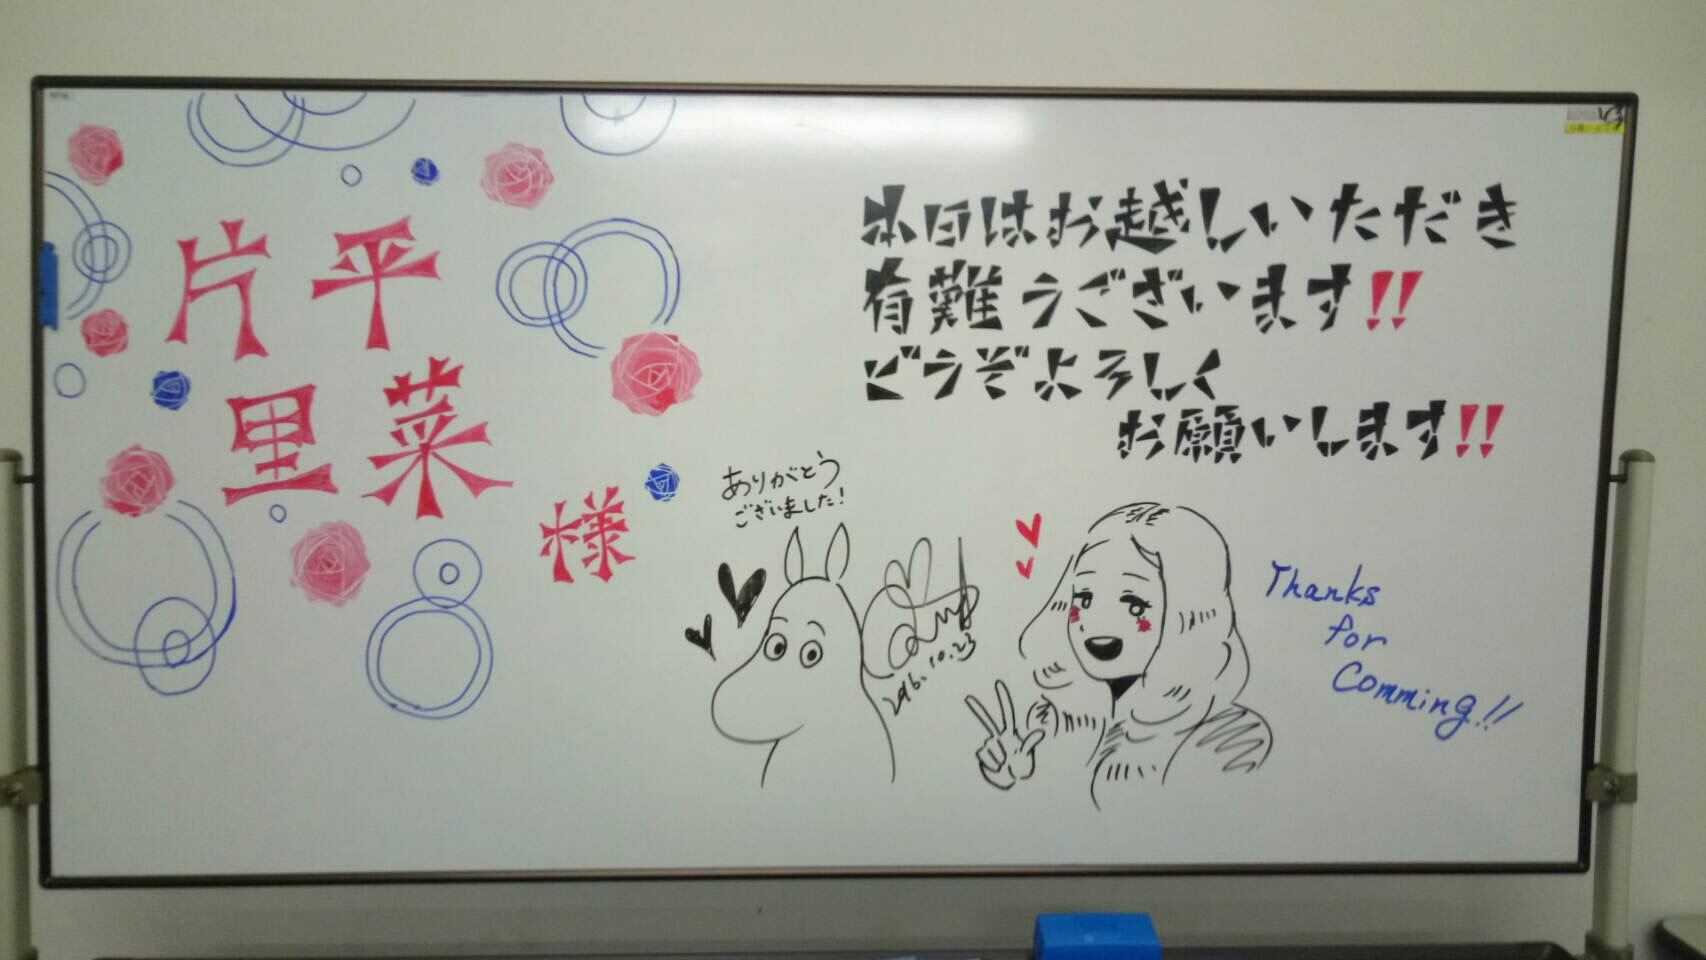 片平
里菜
様
本日はお越しいただき
有難うございます!!
どうぞよろしく
お願いします!!
ありがとう
ございました!
2016.10.23
Thanks
for
Comming!!